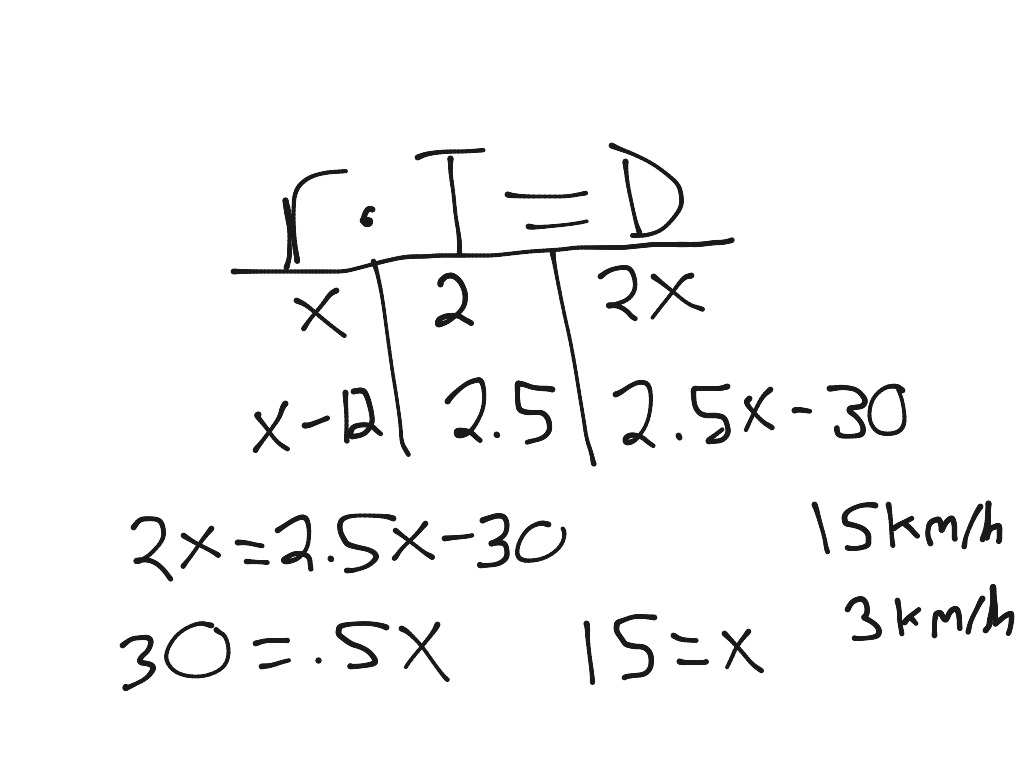 r · T = D
x 2 2x
x - 12 2.5 2.5x - 30
2x = 2.5x - 30
15 km/h
30 = .5x 15 = x
3 km/h